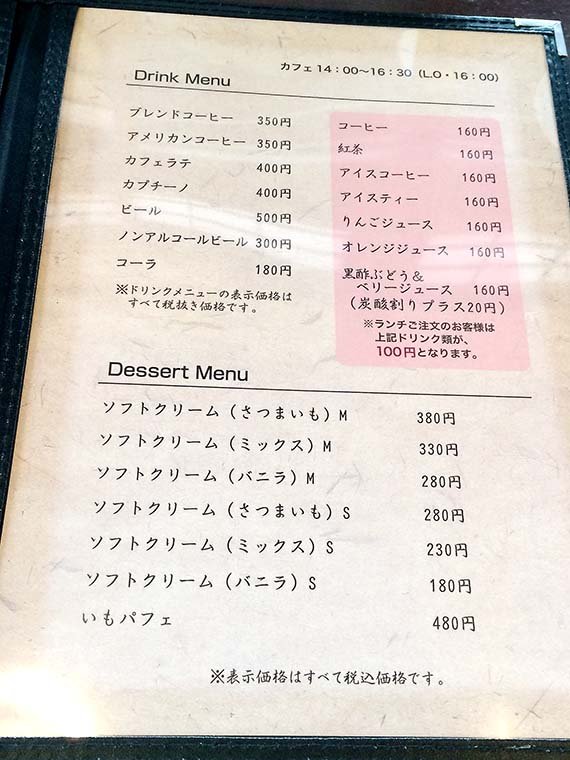 カフェ 14：00～16：30（L.O・16：00）
Drink Menu
ブレンドコーヒー 350円
アメリカンコーヒー 350円
カフェラテ 400円
カプチーノ 400円
ビール 500円
ノンアルコールビール 300円
コーラ 180円
※ドリンクメニューの表示価格は
すべて税抜き価格です。
コーヒー 160円
紅茶 160円
アイスコーヒー 160円
アイスティー 160円
りんごジュース 160円
オレンジジュース 160円
黒酢ぶどう＆
ベリージュース 160円
（炭酸割りプラス20円）
※ランチご注文のお客様は
上記ドリンク類が、
100円となります。
Dessert Menu
ソフトクリーム（さつまいも）M 380円
ソフトクリーム（ミックス）M 330円
ソフトクリーム（バニラ）M 280円
ソフトクリーム（さつまいも）S 280円
ソフトクリーム（ミックス）S 230円
ソフトクリーム（バニラ）S 180円
いもパフェ 480円
※表示価格はすべて税込価格です。